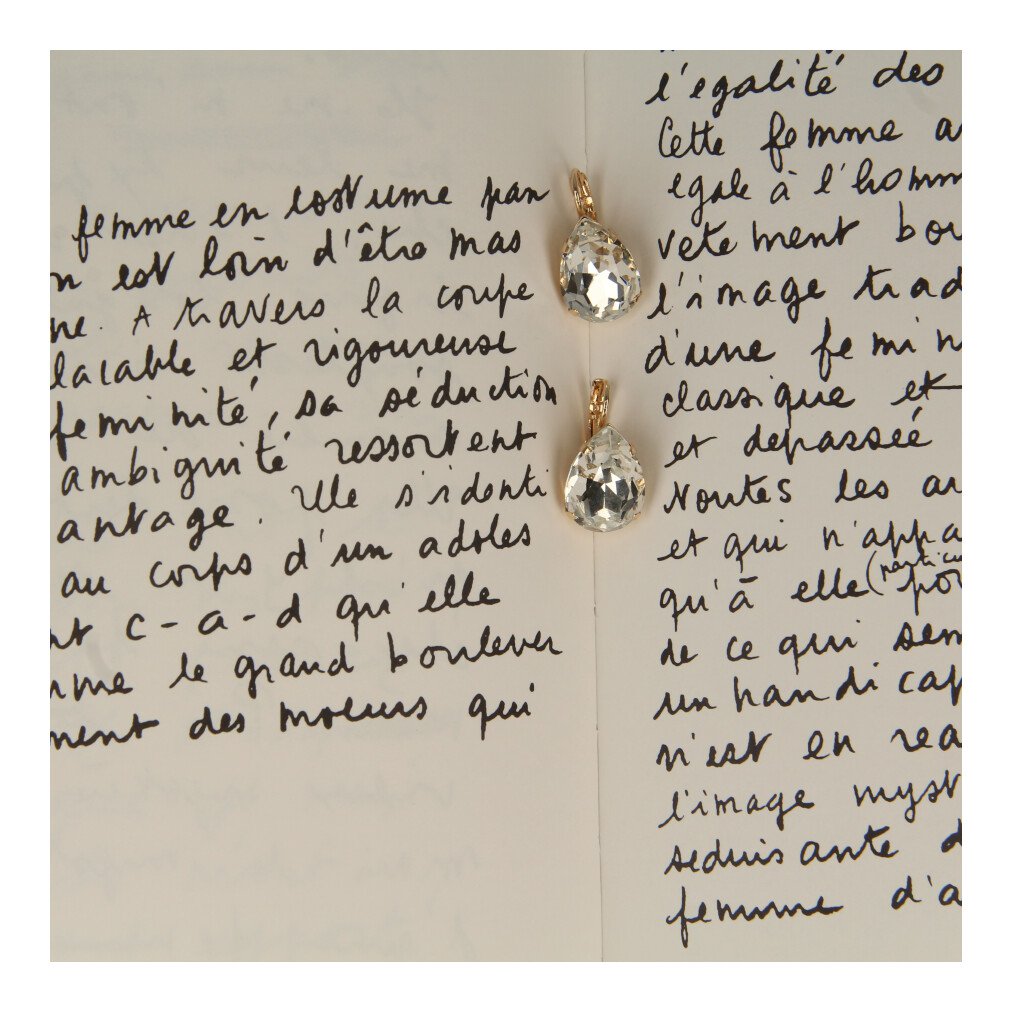 femme en costume pan
n est loin d'être mas
ne. A travers la coupe
lacable et rigoureuse
feminité, sa séduction
ambiguité ressortent
antage. Elle s'identi
au corps d'un adoles
nt c-a-d qu'elle
me le grand boulever
ment des moeurs qui
l'egalité des
Cette femme a
egale à l'homm
vetement bou
l'image trad
d'une femin
classique et
et depassée
toutes les ar
et qui n'appa
qu'à elle (particu
pou
de ce qui sem
un handicap
n'est en rea
l'image myst
seduisante d
femme d'a